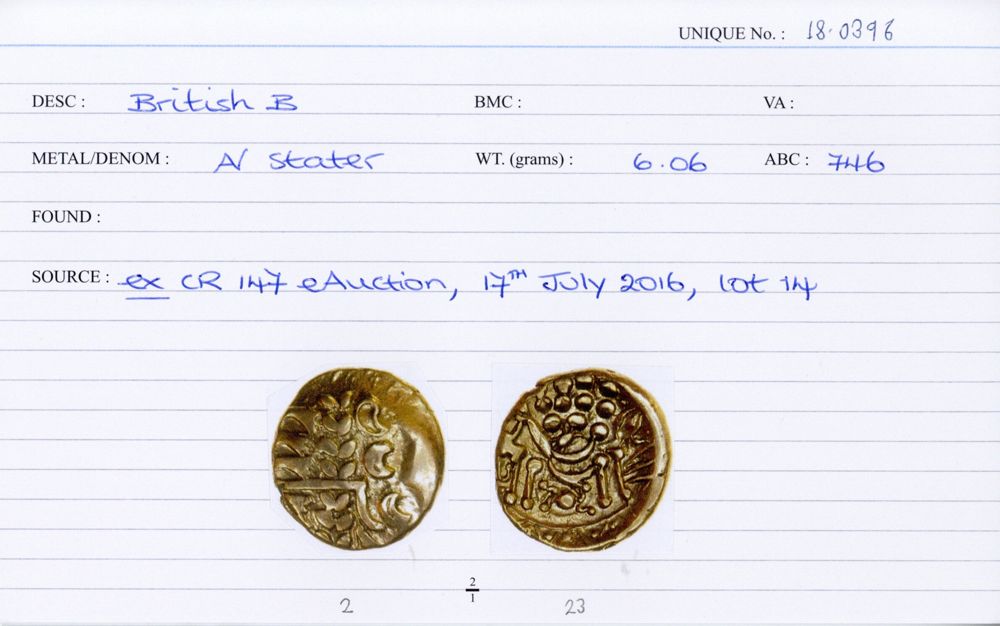 UNIQUE No. : 18.0396
DESC : British B BMC : VA :
METAL/DENOM : AV stater WT. (grams) : 6.06 ABC : 746
FOUND :
SOURCE : ex CR 147 eAuction, 17TH July 2016, lot 14
2
1
2 23